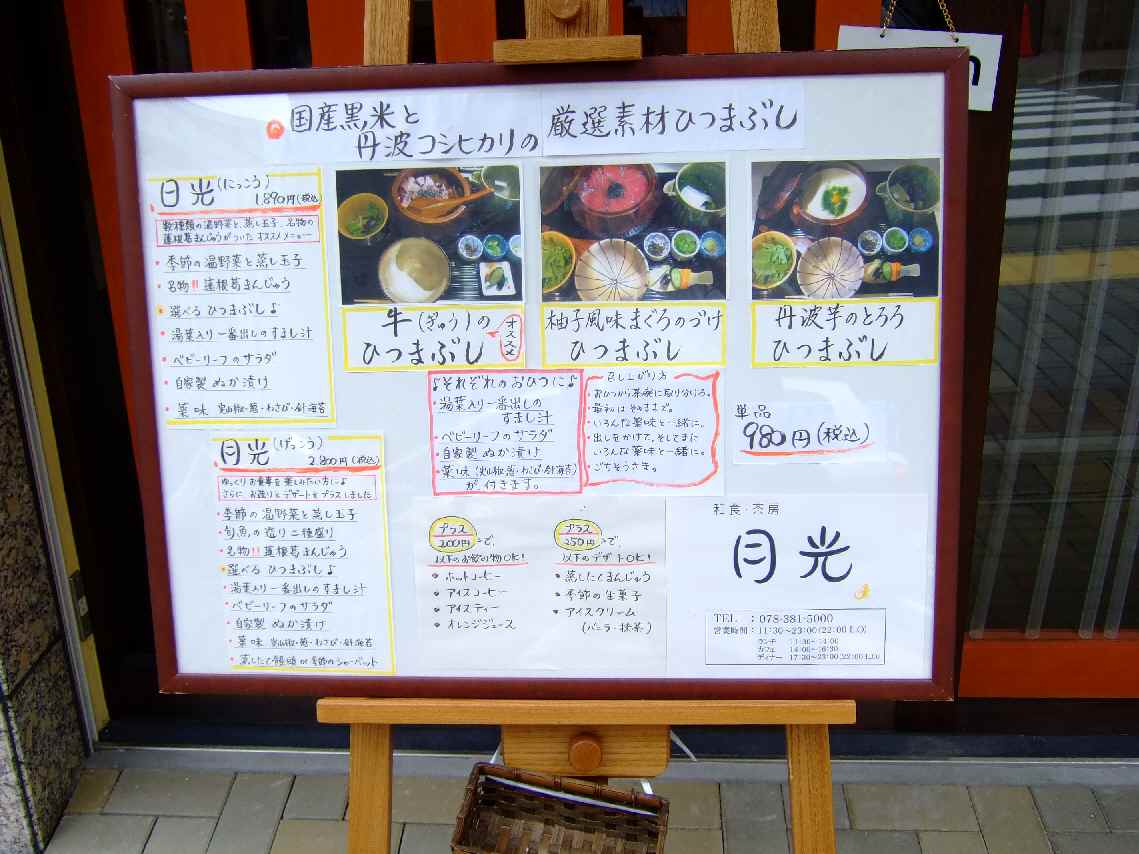 国産黒米と
丹波コシヒカリの 厳選素材ひつまぶし
日光(にっこう)
1,890円(税込)
数種類の温野菜と、蒸し玉子、名物の
蓮根葛まんじゅうがついた オススメメニュー
・季節の温野菜と蒸し玉子
・名物!!蓮根葛まんじゅう
選べる ひつまぶし♪
・湯葉入り一番出しのすまし汁
・ベビーリーフのサラダ
・自家製 ぬか漬け
・薬味 実山椒・葱・わさび・針海苔
月光(げっこう)
2,800円(税込)
ゆっくりお食事を楽しみたい方に♪
さらに お造りとデザートをプラスしました
・季節の温野菜と蒸し玉子
・旬魚の造り二種盛り
・名物!!蓮根葛まんじゅう
選べる ひつまぶし♪
・湯葉入り一番出しのすまし汁
・ベビーリーフのサラダ
・自家製 ぬか漬け
・薬味 実山椒・葱・わさび・針海苔
・蒸したて饅頭or季節のシャーベット
牛(ぎゅう)の
ひつまぶし
オススメ
柚子風味まぐろのづけ
ひつまぶし
丹波芋のとろろ
ひつまぶし
♪それぞれのおひつに♪
・湯葉入り一番出しの
すまし汁
・ベビーリーフのサラダ
・自家製 ぬか漬け
・薬味(実山椒・葱・わさび・針海苔)
が、付きます。
召し上がり方
・おひつから茶碗に取り分けろ。
・最初はそのままで。
・いろんな薬味と一緒に。
・出しをかけて、そしてまた
いろんな薬味と一緒に。
・ごちそうさま。
単品
980円(税込)
プラス
200円 で、
以下のお飲み物OK!
・ホットコーヒー
・アイスコーヒー
・アイスティー
・オレンジジュース
プラス
250円 で、
以下のデザートOK!
・蒸したてまんじゅう
・季節の生菓子
・アイスクリーム
(バニラ・抹茶)
和食・茶房
月光
TEL :078-381-5000
営業時間:11:30~23:00(22:00 L.O)
ランチ
カフェ
ディナー :17:30~23:00(22:00 L.O)